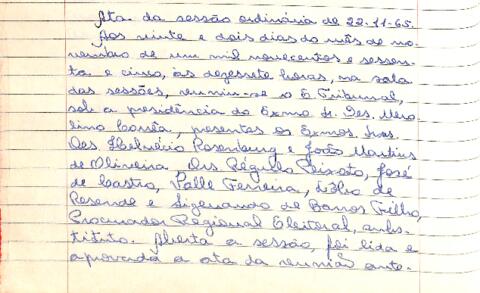 Ata da sessão ordinária de 22-11-65.
Aos vinte e dois dias do mês de no-
vembro de um mil novecentos e sessen-
ta e cinco, às dezessete horas, na sala
das sessões, reuniu-se o E. Tribunal,
sob a presidência do Exmo Sr. Des. Mero-
lino Corrêa, presentes os Exmos. Srs.
Des. Helvécio Rosenburg e João Martins
de Oliveira Drs Régulo Peixoto, José
de Castro, Valle Ferreira, de
Resende e Sizenando de Barros Filho,
Procurador Regional Eleitoral, subs-
tituto. Aberta a sessão, foi lida e
aprovada a ata da reunião ante-